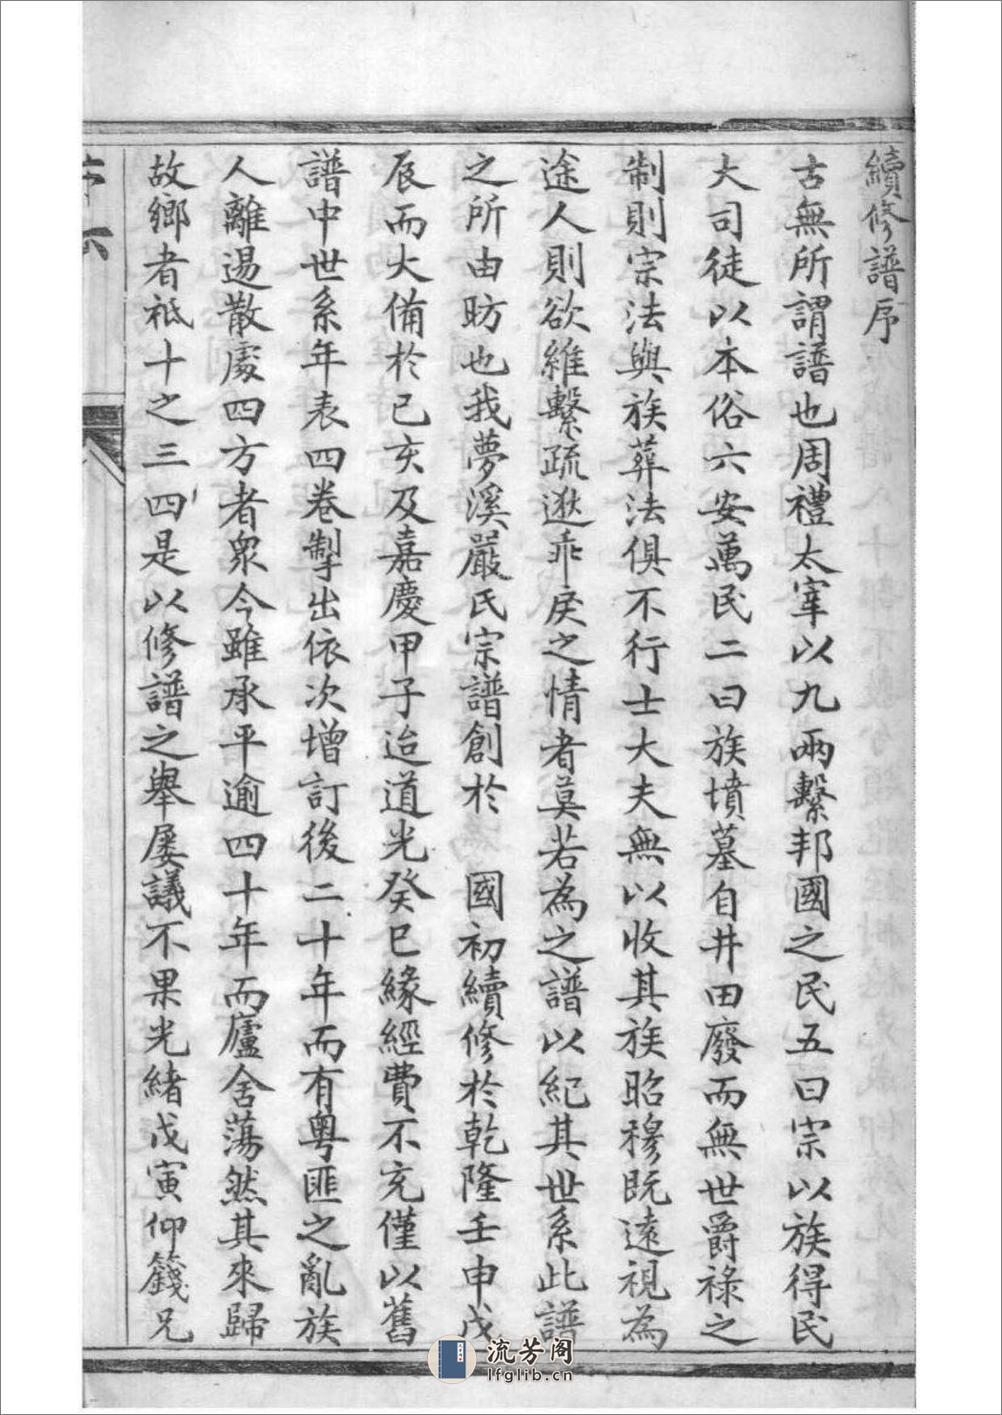 續修譜序
古無所謂譜也周禮太宰以九兩繫邦國之民五曰宗以族得民
大司徒以本俗六安萬民二曰族墳墓自井田廢而無世爵祿之
制則宗法與族葬法俱不行士大夫無以收其族昭穆既遠視為
途人則欲維繫疏逖乖戾之情者莫若為之譜以紀其世系此譜
之所由昉也我夢溪嚴氏宗譜創於 國初續修於乾隆壬申戊
辰而大備於己亥及嘉慶甲子迨道光癸巳緣經費不充僅以舊
譜中世系年表四卷掣出依次增訂後二十年而有粵匪之亂族
人離逷散處四方者眾今雖承平逾四十年而廬舍蕩然其來歸
故鄉者祗十之三四是以修譜之舉屢議不果光緒戊寅仰籛兄
流芳阁
lfglib.cn